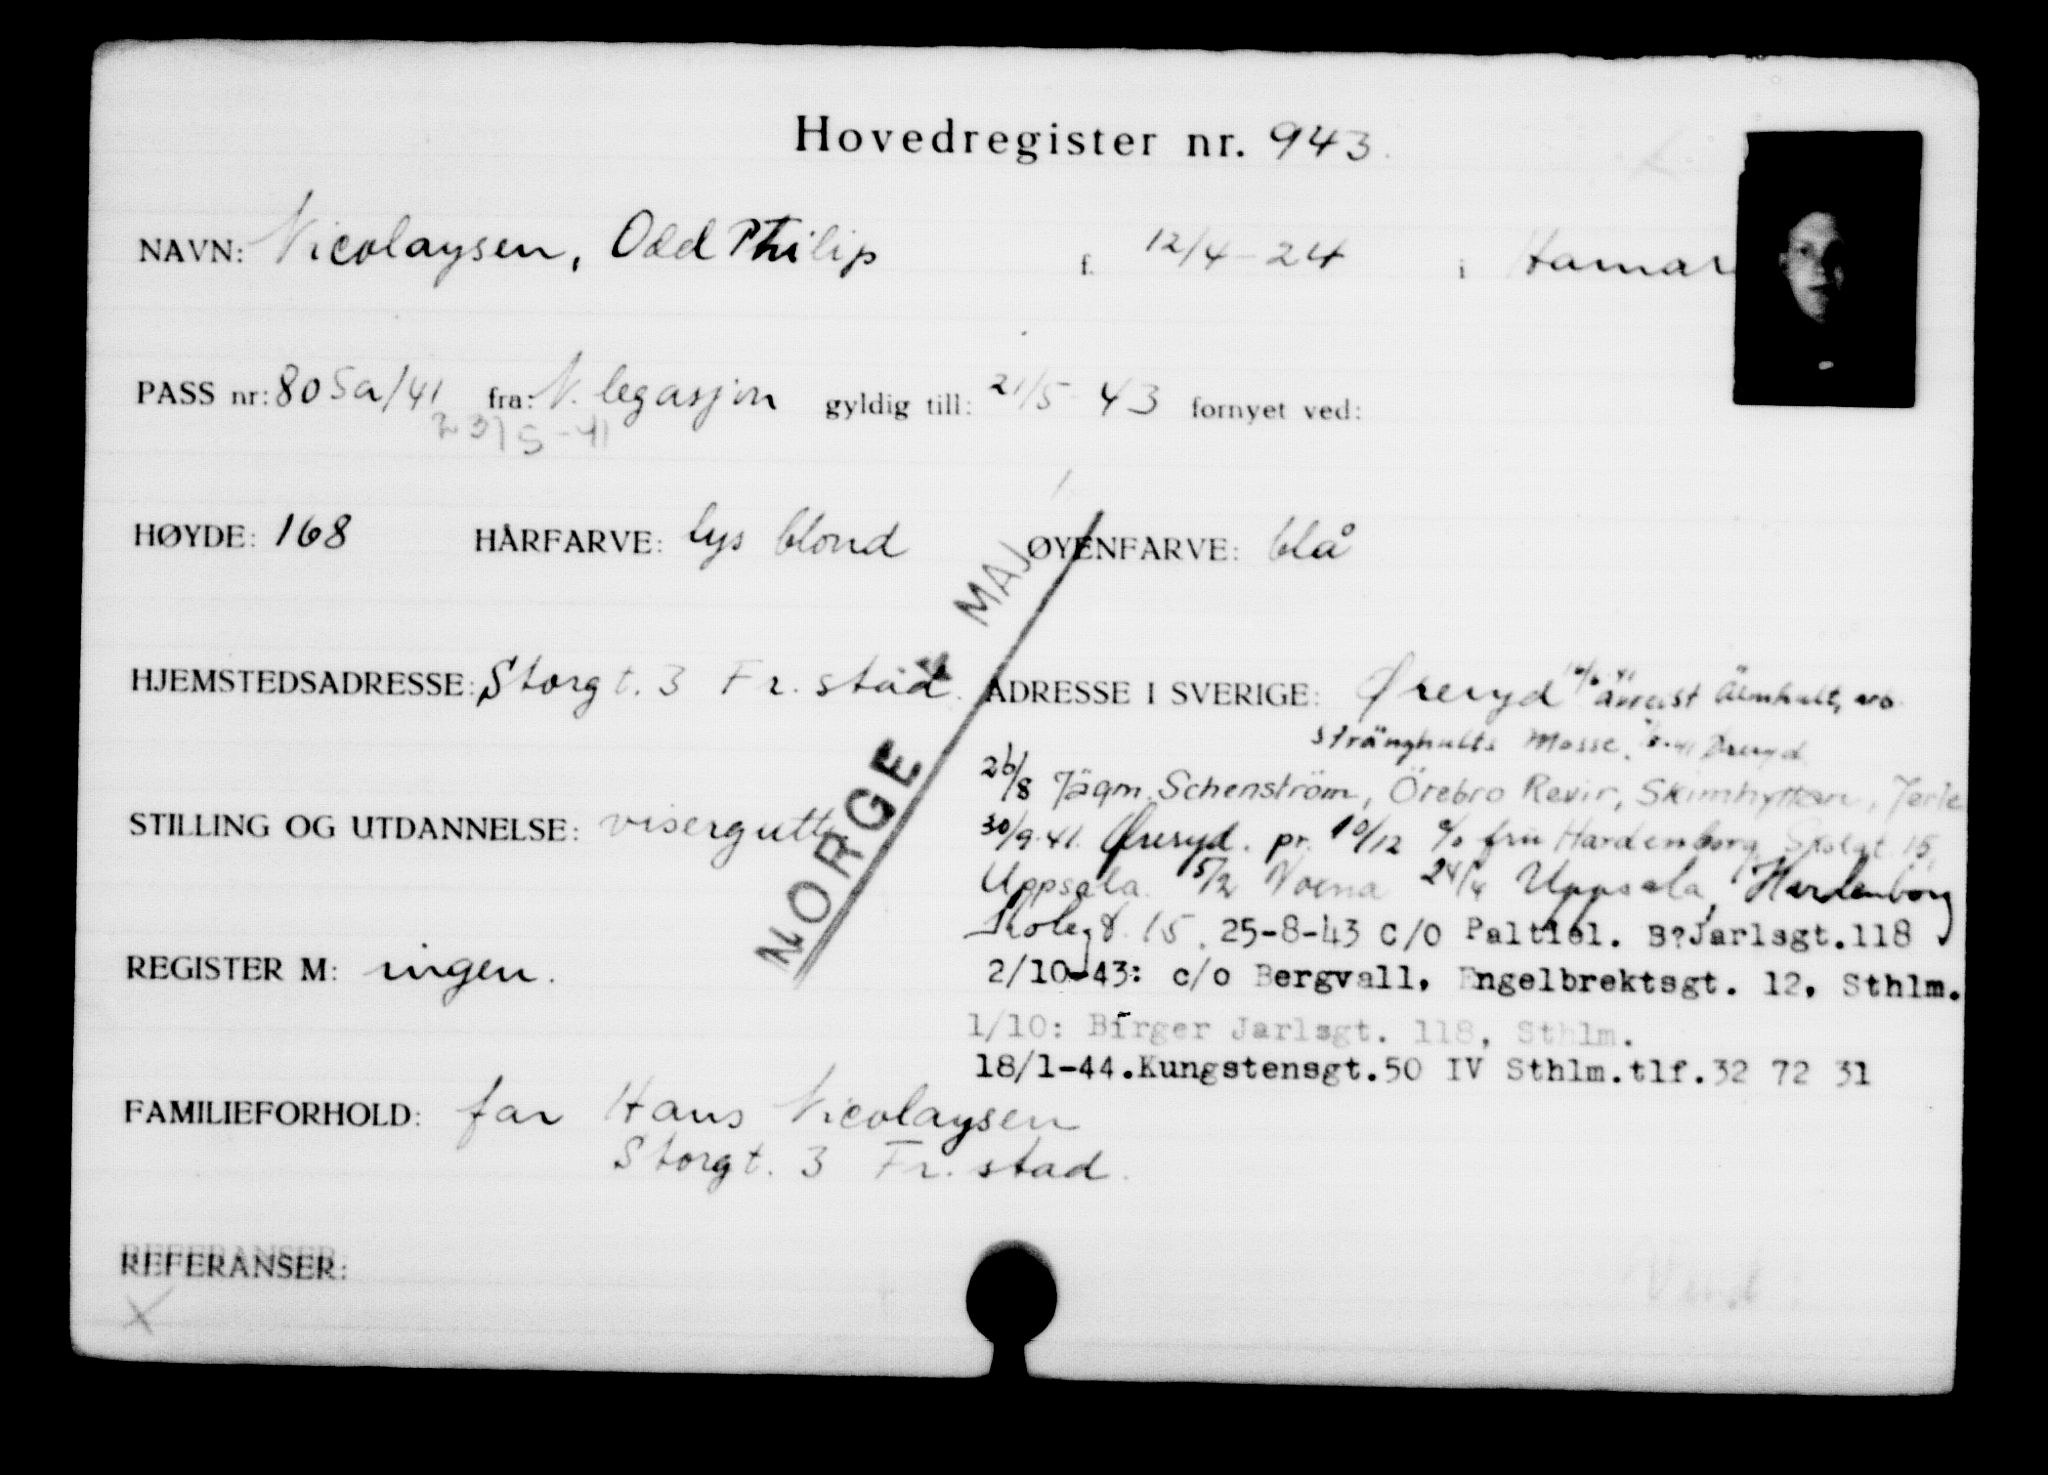 Hovedregister nr. 943.
NAVN: Nicolaysen, Odd Philip f. 12/4-24 i Hamar
PASS nr: 805a/41 fra: N. legasjon gyldig till: 21/5-43 fornyet ved:
23/5-41
HØYDE: 168 HÅRFARVE: lys blond ØYENFARVE: blå
MAJ
HJEMSTEDSADRESSE: Storgt. 3 Fr.stad. ADRESSE I SVERIGE: Øreryd avreist Älmhult, arb
Stränghults Mosse. Øreryd
26/8 Jägm. Schenström, Örebro Revir, Skimhyttan, Järle
STILLING OG UTDANNELSE: visergutt
30/9-41. Øreryd. pr. 10/12 c/o fru Hardenborg Skolgt. 15,
Uppsala. 5/2 Voxna 24/4 Uppsala, Hardenborg
NORGE
Skolegt. 15. 25-8-43 C/O Paltiel. B?Jarlsgt.118
REGISTER M: ingen.
2/10-43: c/o Bergvall, Engelbrektsgt. 12, Sthlm.
1/10: Birger Jarlsgt. 118, Sthlm.
18/1-44.Kungstensgt.50 IV Sthlm.tlf.32 72 31
FAMILIEFORHOLD: far Hans Nicolaysen
Storgt. 3 Fr.stad.
REFERANSER:
X